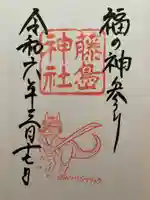 福の神参り
藤島
神社
令和六年三月十七日